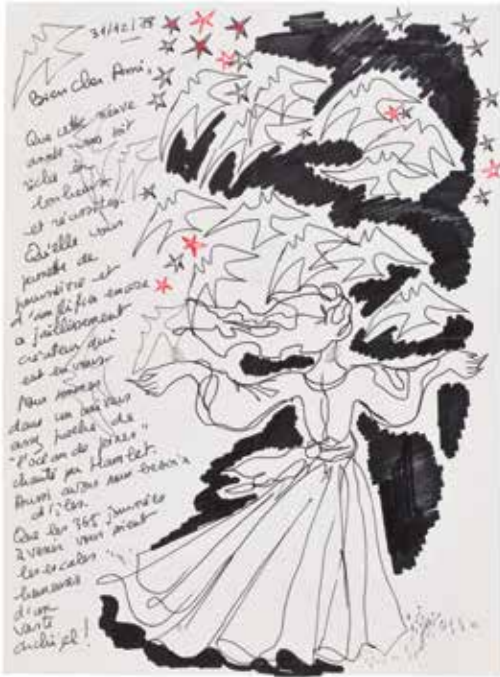 31/12/78
Bien Cher Ami,
Que cette neuve
année vous soit
riche en
bonheurs
et réussites.
Qu'elle vous
permette de
poursuivre et
d'amplifier encore
ce jaillissement
créateur qui
est en vous.
Nous sommes
dans un univers
assez proche de
"l'océan de peines"
chanté par Hamlet.
Aussi avons nous besoin
d'îles.
Que les 365 journées
à venir vous soient
les escales
heureuses
d'un
vaste
archipel !